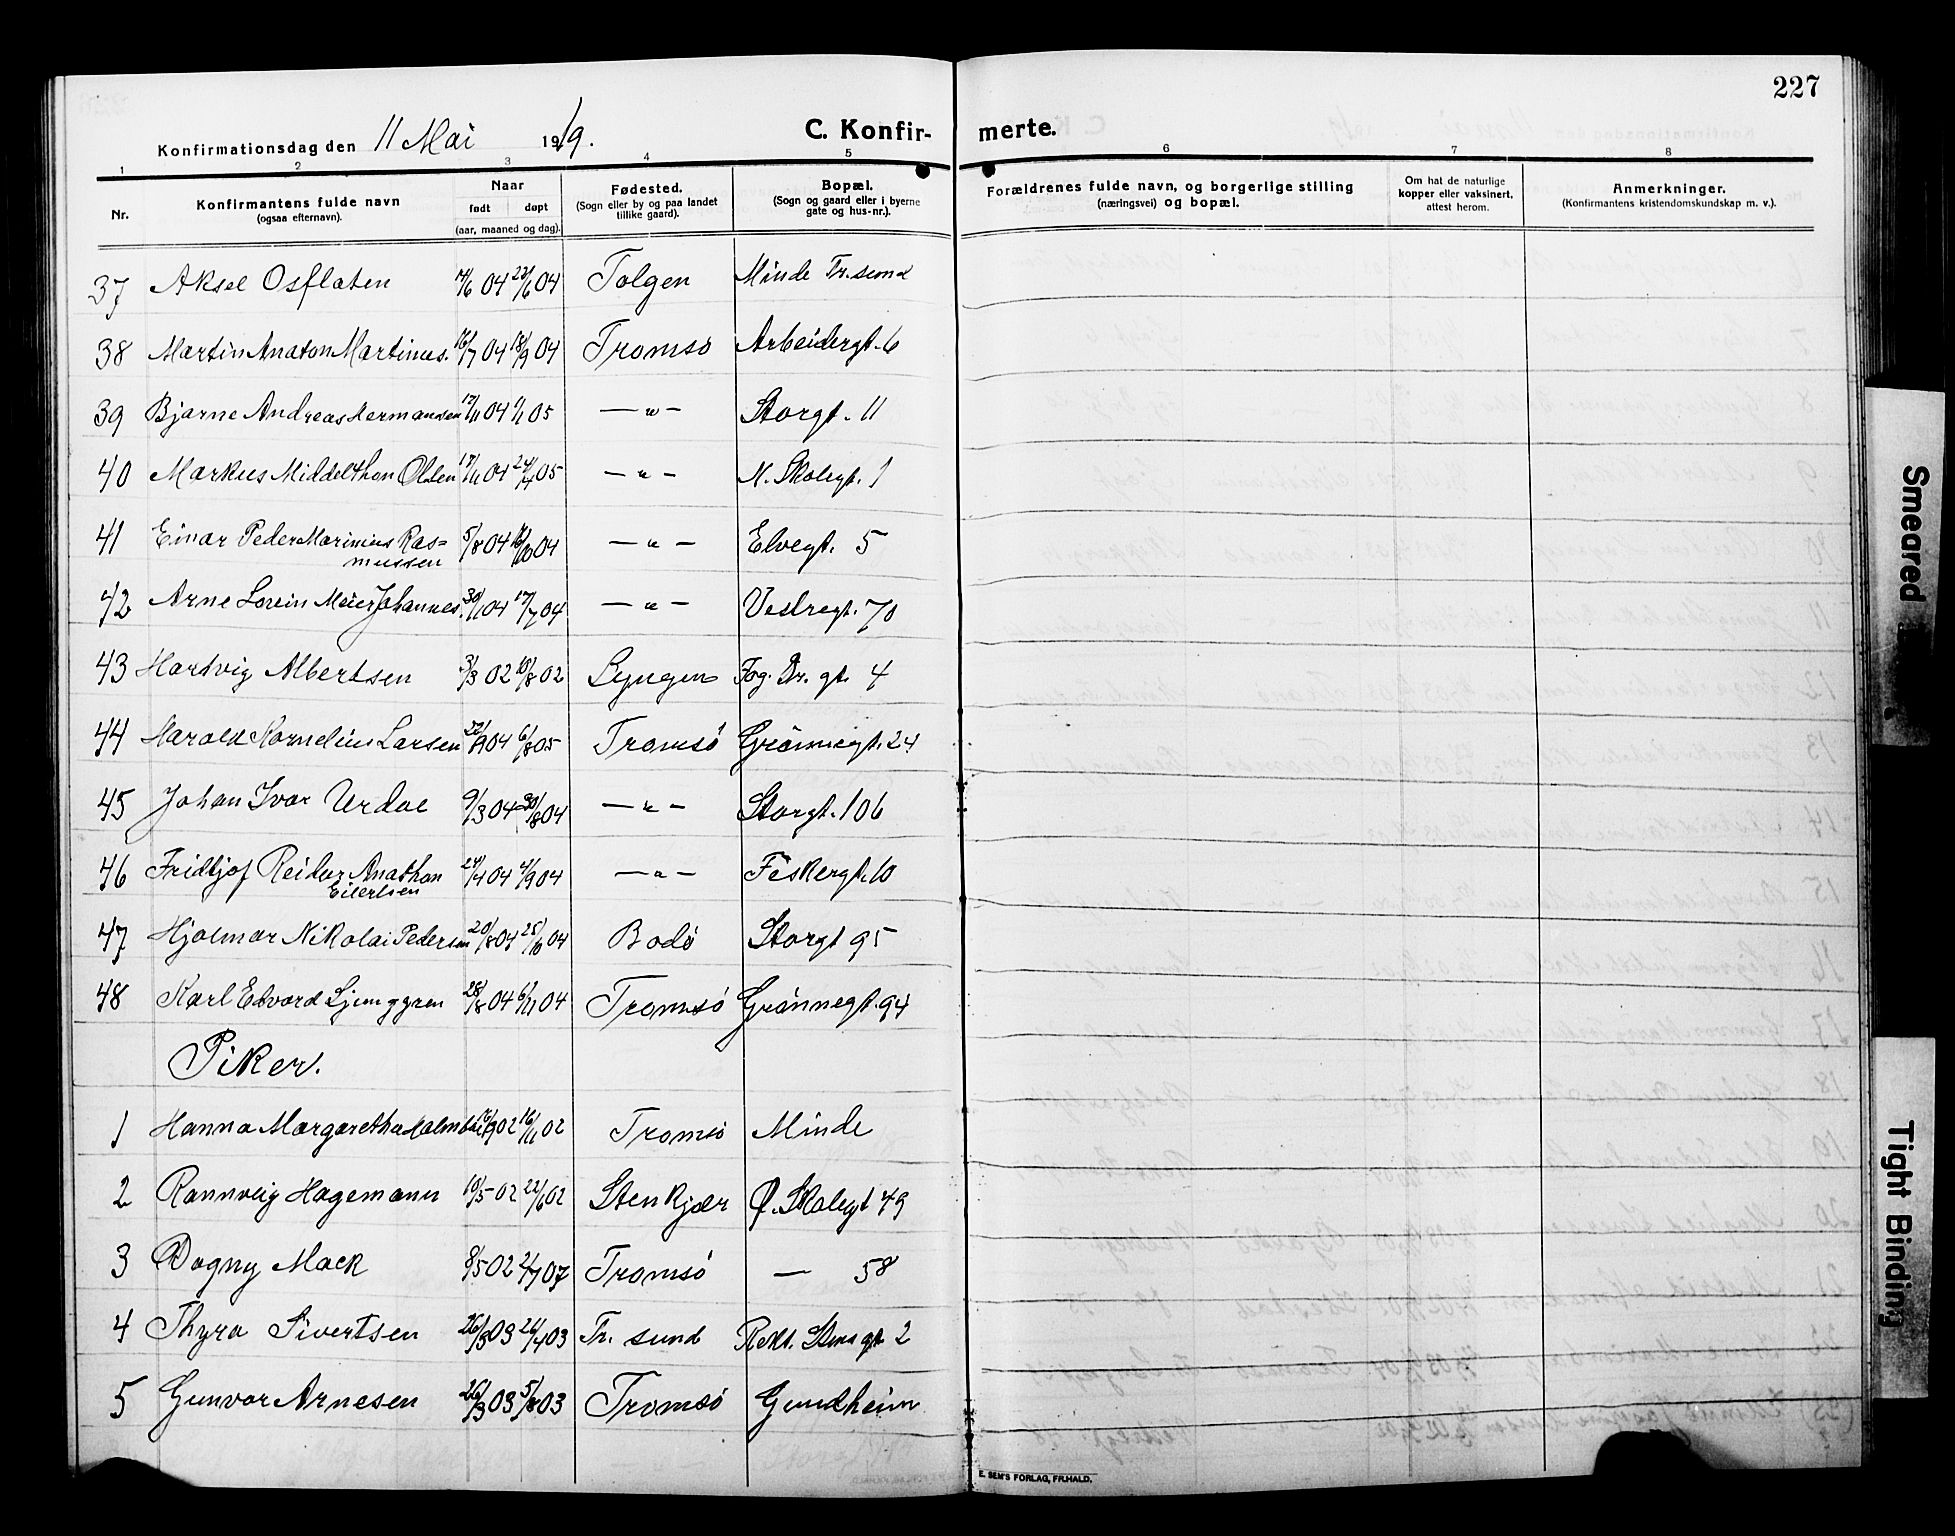 227
Konfirmationsdag den 11 Mai 1919.
C. Konfir- merte.
1 2 3 4 5 6 7 8
Nr.
Konfirmantens fulde navn
(ogsaa efternavn).
Naar
født døpt
(aar, maaned og dag).
Fødested.
(Sogn eller by og paa landet
tillike gaard).
Bopæl.
(Sogn og gaard eller i byerne
gate og hus-nr.).
Forældrenes fulde navn, og borgerlige stilling
(næringsvei) og bopæl.
Om hat de naturlige
kopper eller vaksinert,
attest herom.
Anmerkninger.
(Konfirmantens kristendomskundskap m. v.).
37 Aksel Osflaten 14/6 04 23/6 04 Tolgen Minde Tr.sund
38 Martin Anaton Martinus. 16/7 04 18/9 04 Tromsö Arbeidergt. 6
39 Bjarne Andreas Hermansen 17/11 04 1/1 05 — " — Storgt. 11
40 Markus Middelthon Olsen 17/11 04 24/4 05 — " — N. Skolegt. 1
41 Einar Peder Marinius Ras=
mussen 5/8 04 16/10 04 — " — Elvegt. 5
42 Arne Lorein Meier Johannes. 30/1 04 17/7 04 — " — Vestregt. 70
43 Hartvig Albertsen 3/3 02 10/8 02 Lyngen Fog. Dr. gt. 4
44 Harald Kornelius Larsen 22/9 04 6/8 05 Tromsö Grönnegt. 24
45 Johan Ivar Urdal 9/3 04 30/8 04 — " — Storgt. 106
46 Fridtjof Reidar Anathon
Eilertsen 24/4 04 4/9 04 — " — Fiskergt. 10
47 Hjalmar Nikolai Pedersen 20/8 04 25/10 04 Bodö Storgt 95
48 Karl Edvard Ljunggren 28/8 04 6/11 04 Tromsö Grönnegt. 94
Piker.
1 Hanna Margaretha 16/9 02 16/11 02 Tromsö Minde
2 Rannveig Hagemann 19/5 02 22/6 02 Stenkjær Ø. Skolegt 49
3 Dagny Mack 8/5 02 2/7 07 Tromsö — 58
4 Thyra Sivertsen 26/3 03 26/4 03 Tr. sund Rekt. Stens gt 2
5 Gunvor Arnesen 26/3 03 5/8 03 Tromsö Gundheim
E. SEM'S FORLAG, FR.HALD.
Smeared
Tight Binding